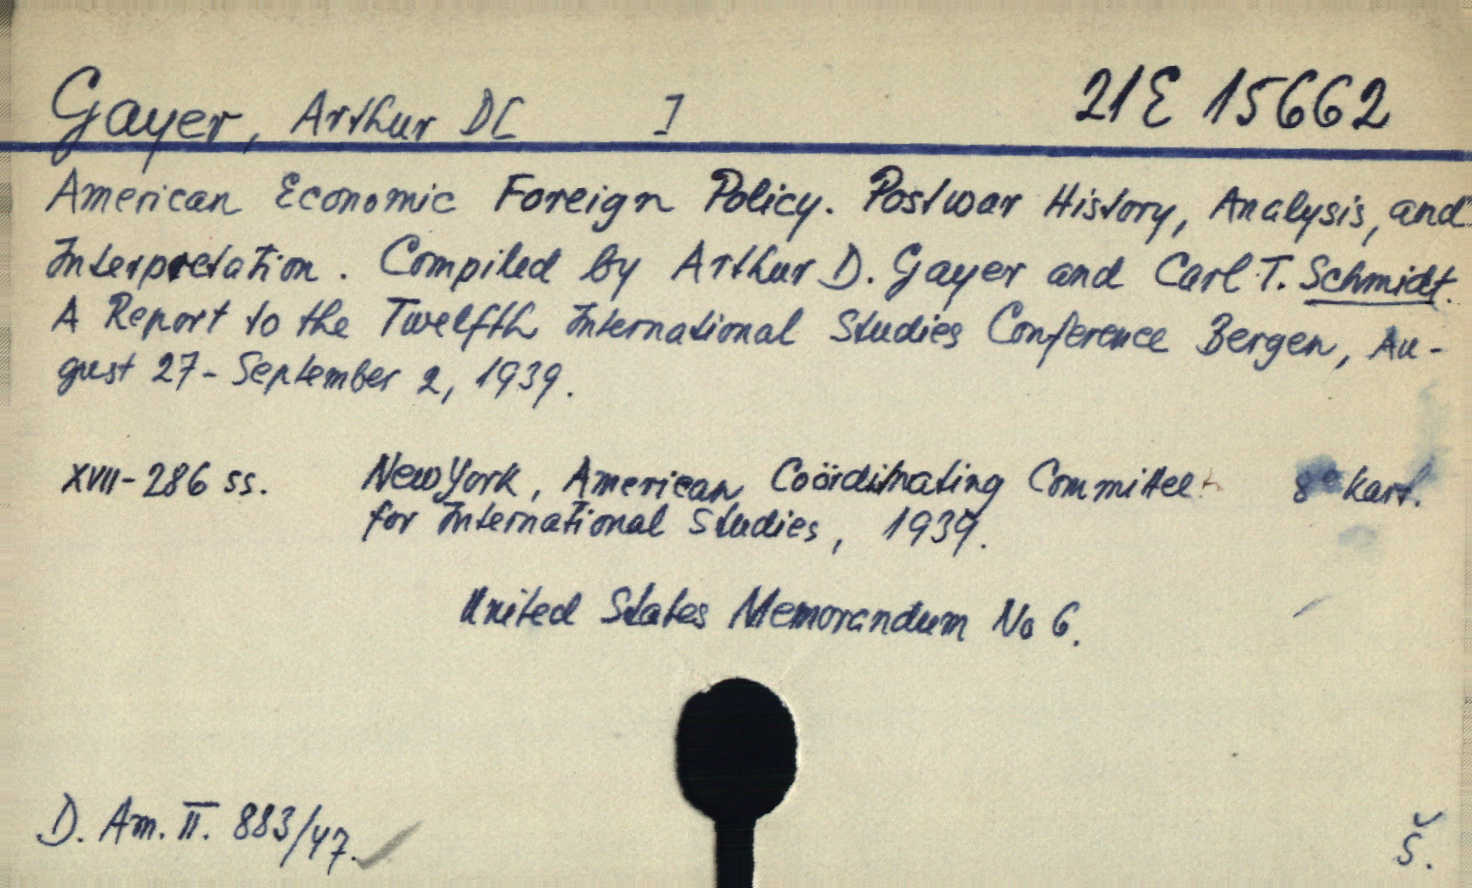 Gayer, Arthur D[ ] 21E 15662
American Economic Foreign Policy. Postwar History, Analysis, and
Interpretation. Compiled by Arthur D. Gayer and Carl T. Schmidt.
A Report to the Twelfth International Studies Conference Bergen, Au-
gust 27 - September 2, 1939.
XVII - 286 ss. New York, American Coördinating Committee 8° kart.
for International Studies, 1939.
United States Memorandum No 6.
D. Am. II. 883/47.
Š.